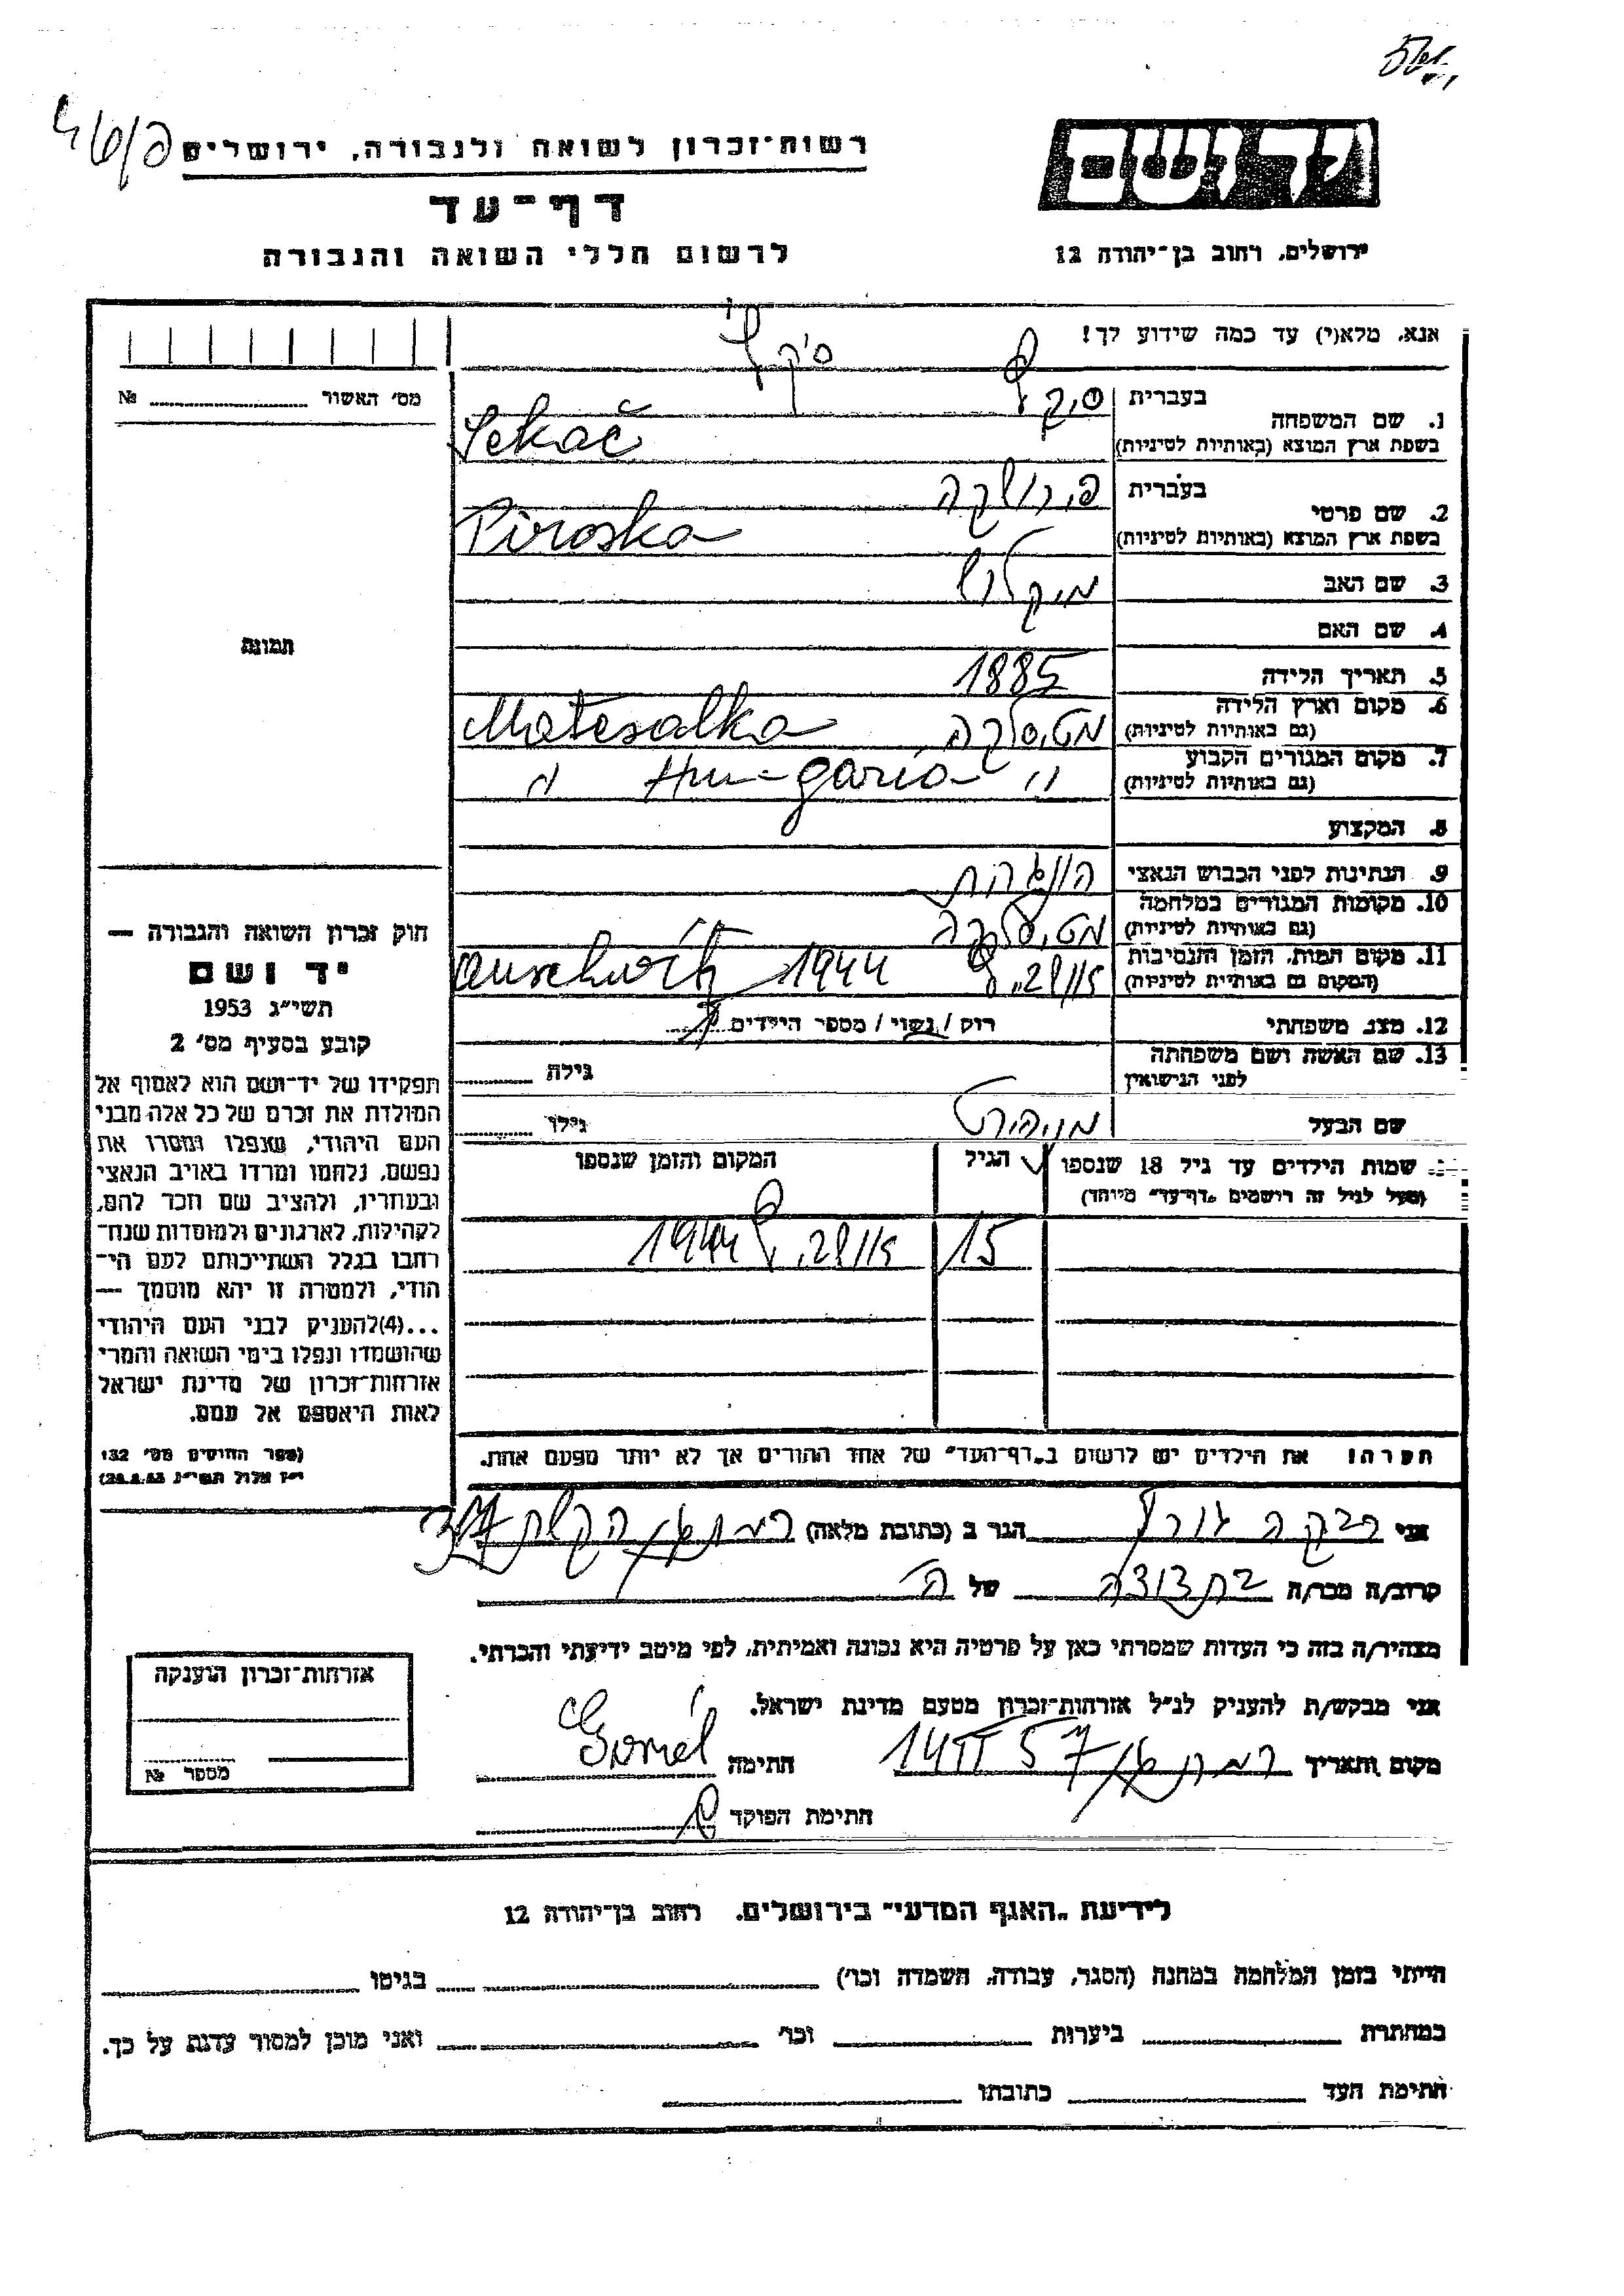 רשות־זכרון לשואה ולגבורה, ירושלים
דף־עד
לרשום חללי השואה והגבורה
יד ושם
ירושלים, רחוב בן־יהודה 12
אנא, מלא(י) עד כמה שידוע לך!
מס' האשור № 
1. שם המשפחה
בעברית
בשפת ארץ המוצא (באותיות לטיניות)
Sekač
2. שם פרטי
בעברית פירושקה
בשפת ארץ המוצא (באותיות לטיניות)
Piroska
3. שם האב מיקלוש
4. שם האם
5. תאריך הלידה 1885
6. מקום וארץ הלידה
(גם באותיות לטיניות)
Matesalka
7. מקום המגורים הקבוע
(גם באותיות לטיניות)
" Hungaria "
8. המקצוע
9. הנתינות לפני הכבוש הנאצי
10. מקומות המגורים במלחמה
(גם באותיות לטיניות)
11. מקום המות, הזמן והנסיבות
(המקום גם באותיות לטיניות)
אושויץ 1944 Auschwitz
12. מצב משפחתי רוק / נשוי / מספר הילדים
13. שם האשה ושם משפחתה
לפני הנישואין
גילה
שם הבעל
גילו
שמות הילדים עד גיל 18 שנספו
(מעל לגיל זה רושמים „דף־עד" מיוחד)
הגיל
המקום והזמן שנספו
15 אושויץ 1944
הערה: את הילדים יש לרשום ב„דף־העד" של אחד ההורים אך לא יותר מפעם אחת.
תמונה
חוק זכרון השואה והגבורה —
יד ושם
תשי"ג 1953
קובע בסעיף מס' 2
תפקידו של יד־ושם הוא לאסוף אל
המולדת את זכרם של כל אלה מבני
העם היהודי, שנפלו ומסרו את
נפשם, נלחמו ומרדו באויב הנאצי
ובעוזריו, ולהציב שם וזכר להם,
לקהילות, לארגונים ולמוסדות שנח־
רבו בגלל השתייכותם לעם הי־
הודי, ולמטרה זו יהא מוסמך —
...(4) להעניק לבני העם היהודי
שהושמדו ונפלו בימי השואה והמרי
אזרחות־זכרון של מדינת ישראל
לאות היאספם אל עמם.
(ספר החוקים מס' 132
י"ז אלול תשי"ג 28.8.53)
אני רבקה הגר ב (כתובת מלאה) רמת גן
קרוב/ה מכר/ה בת דודה של הנ"ל
מצהיר/ה בזה כי העדות שמסרתי כאן על פרטיה היא נכונה ואמיתית, לפי מיטב ידיעתי והכרתי.
אני מבקש/ת להעניק לנ"ל אזרחות־זכרון מטעם מדינת ישראל.
מקום ותאריך רמת גן 14 II 57 חתימה
חתימת הפוקד
אזרחות־זכרון הוענקה
מספר №
לידיעת „האגף המדעי" בירושלים. רחוב בן־יהודה 12
הייתי בזמן המלחמה במחנה (הסגר, עבודה, השמדה וכו') בגיטו
במחתרת ביערות וכו' ואני מוכן למסור עדות על כך.
חתימת העד כתובתו